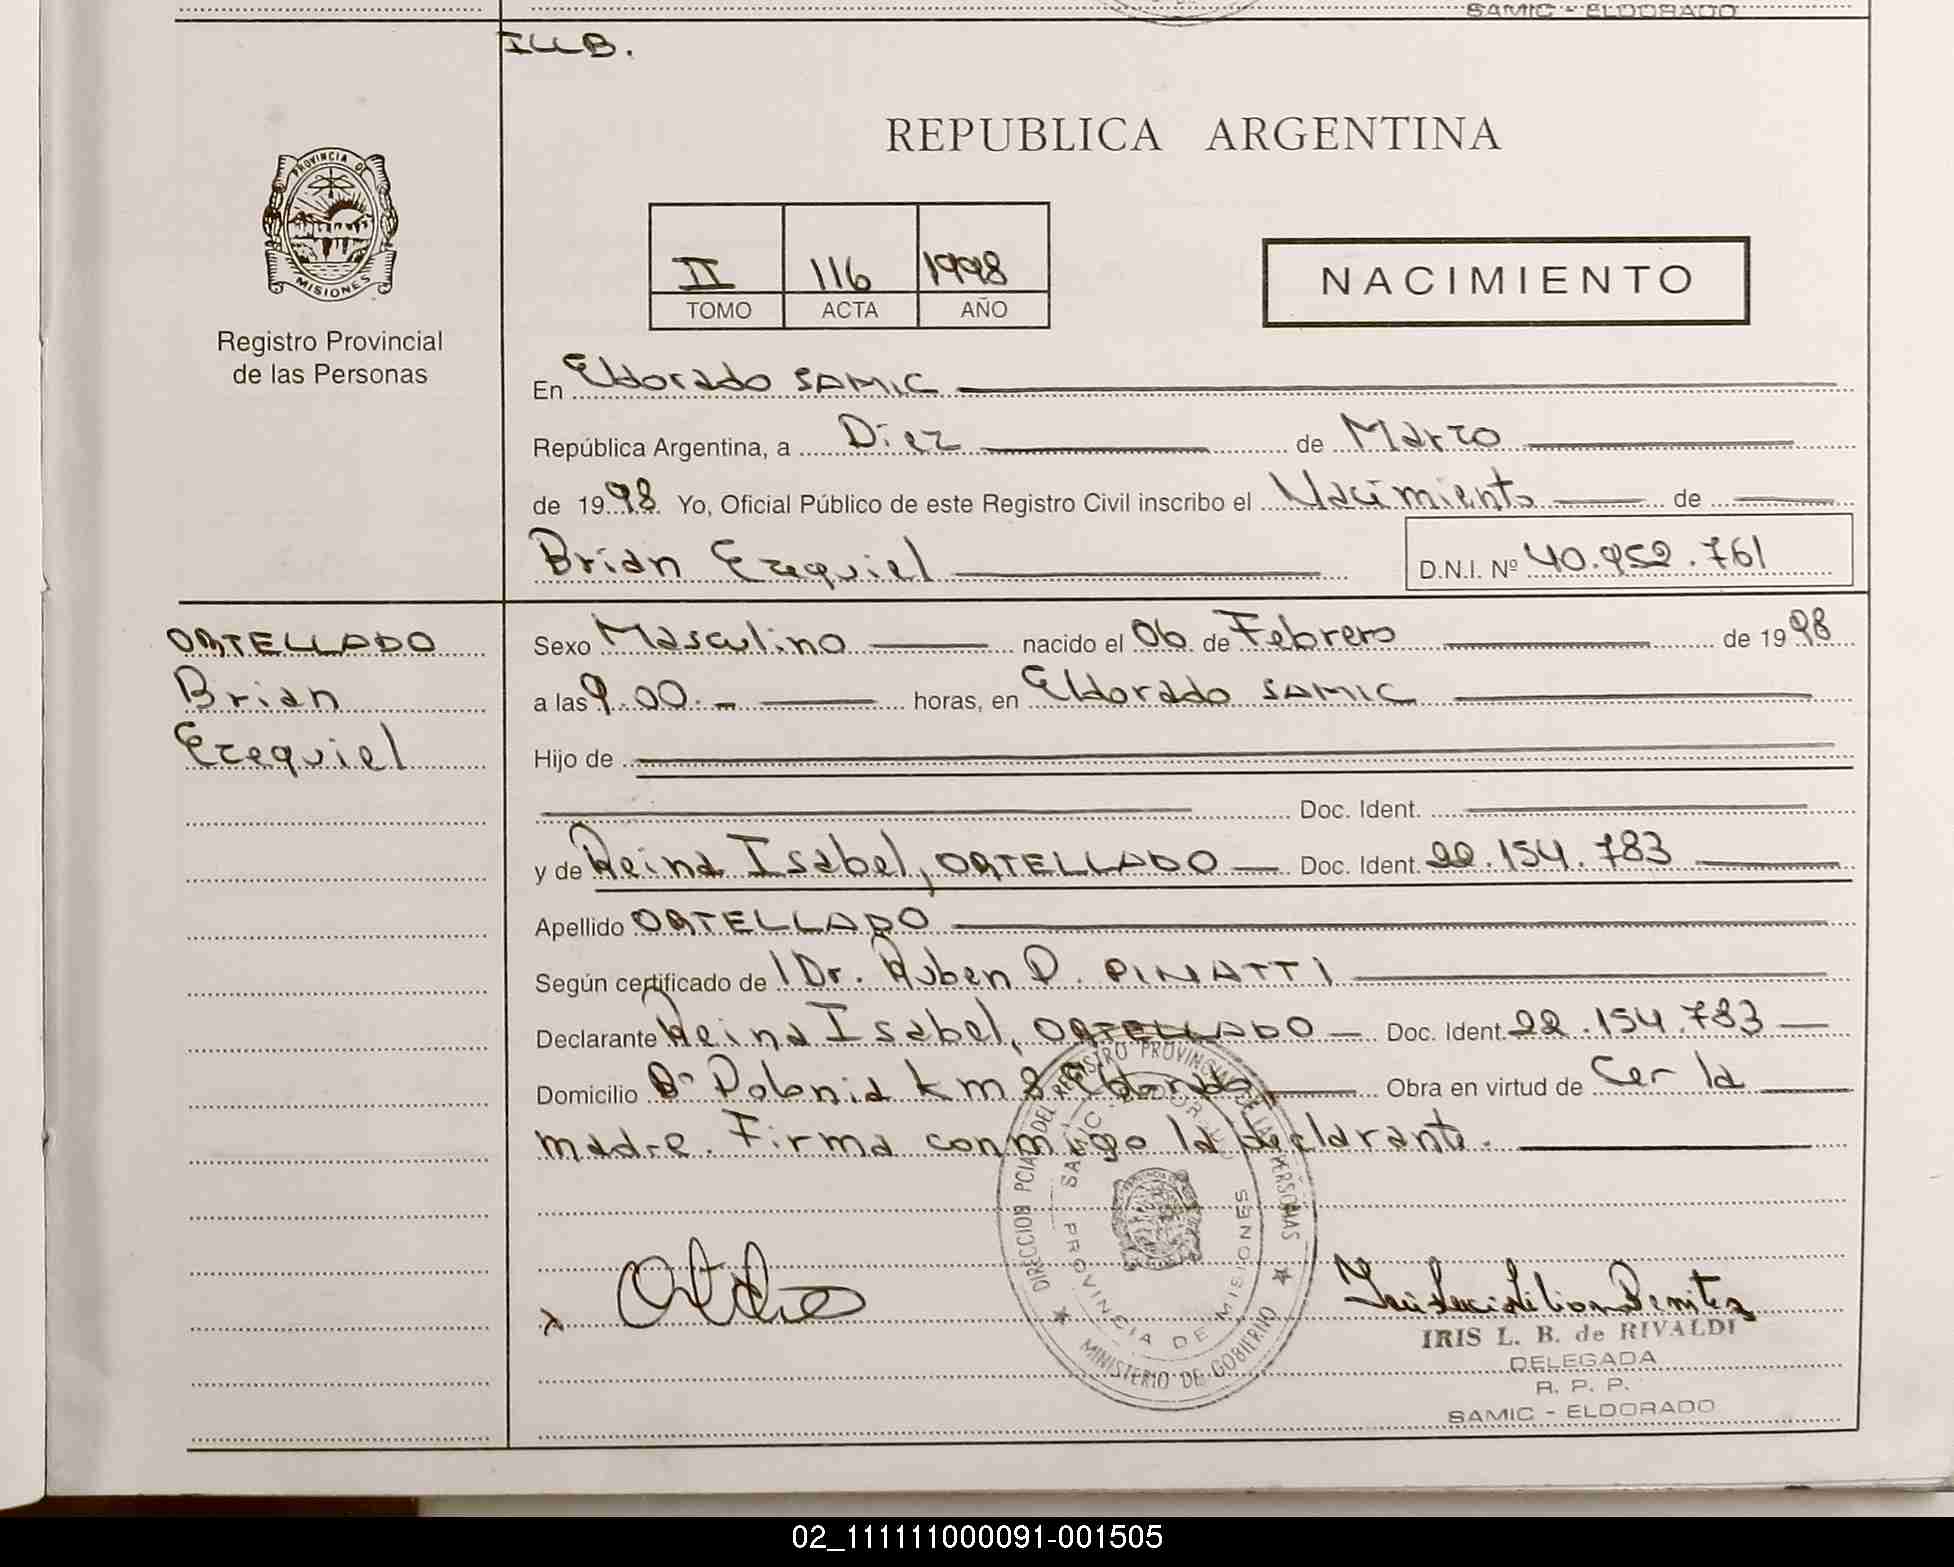 SAMIC - ELDORADO
ILLB.
PROVINCIA DE
MISIONES
Registro Provincial
de las Personas
REPUBLICA ARGENTINA
II 116 1998
TOMO ACTA AÑO
NACIMIENTO
En Eldorado SAMIC
República Argentina, a Diez de Marzo
de 1998 Yo, Oficial Público de este Registro Civil inscribo el Nacimiento de
Brian Ezequiel D.N.I. Nº 40.952.761
ORTELLADO
Brian
Ezequiel
Sexo Masculino nacido el 06 de Febrero de 1998
a las 9.00.- horas, en Eldorado SAMIC
Hijo de
Doc. Ident.
y de Reina Isabel, ORTELLADO Doc. Ident. 22.154.783
Apellido ORTELLADO
Según certificado de 1 Dr. Ruben D. PINATTI
Declarante Reina Isabel, ORTELLADO Doc. Ident. 22.154.783
Domicilio Bº Polonia km 8 Eldorado Obra en virtud de Ser la
madre. Firma conmigo la declarante.
DIRECCION PCIAL DEL REGISTRO PROVINCIAL DE LAS PERSONAS
SAMIC - ELDORADO
PROVINCIA DE MISIONES
MINISTERIO DE GOBIERNO
x
IRIS L. B. de RIVALDI
DELEGADA
R. P. P.
SAMIC - ELDORADO
02_111111000091-001505